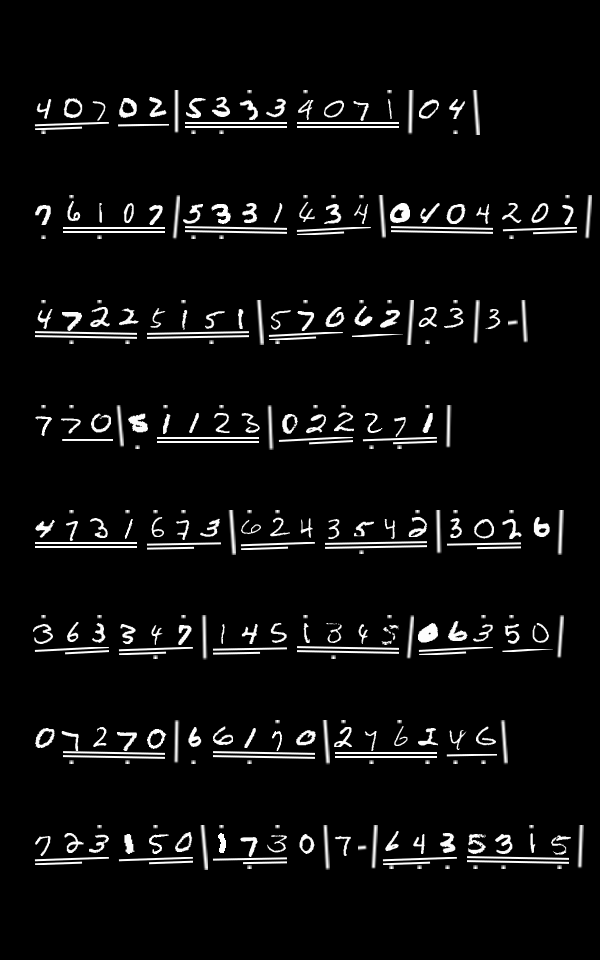 40702|53334071|04
76107|5331434|0404207
47225151|57062|23|3-
770|51123|022271
4731673|6243542|3026
363347|1451345|06350
07270|66170|276146
723150|1730|7-|6435315